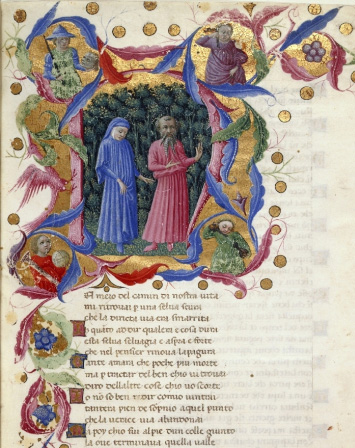 el mezo del camin di nostra uita
mi ritrouai p una selua scura
che la diricta uia era smarrita
quanto adir qualera e cosa dura
esta selua seluagia e aspra e forte
che nel pensier rinoua la paura
Tante amara che poche piu morte
ma p tractar del ben chio ui trouai
diro dellaltre cose chio uo scorte
o no so ben ridir comio uintrai
tantera pien de sopnio aquel punto
che la uerace uia abandonai
a poy chio fui alpie dun colle giunto
la oue terminaua quella valle